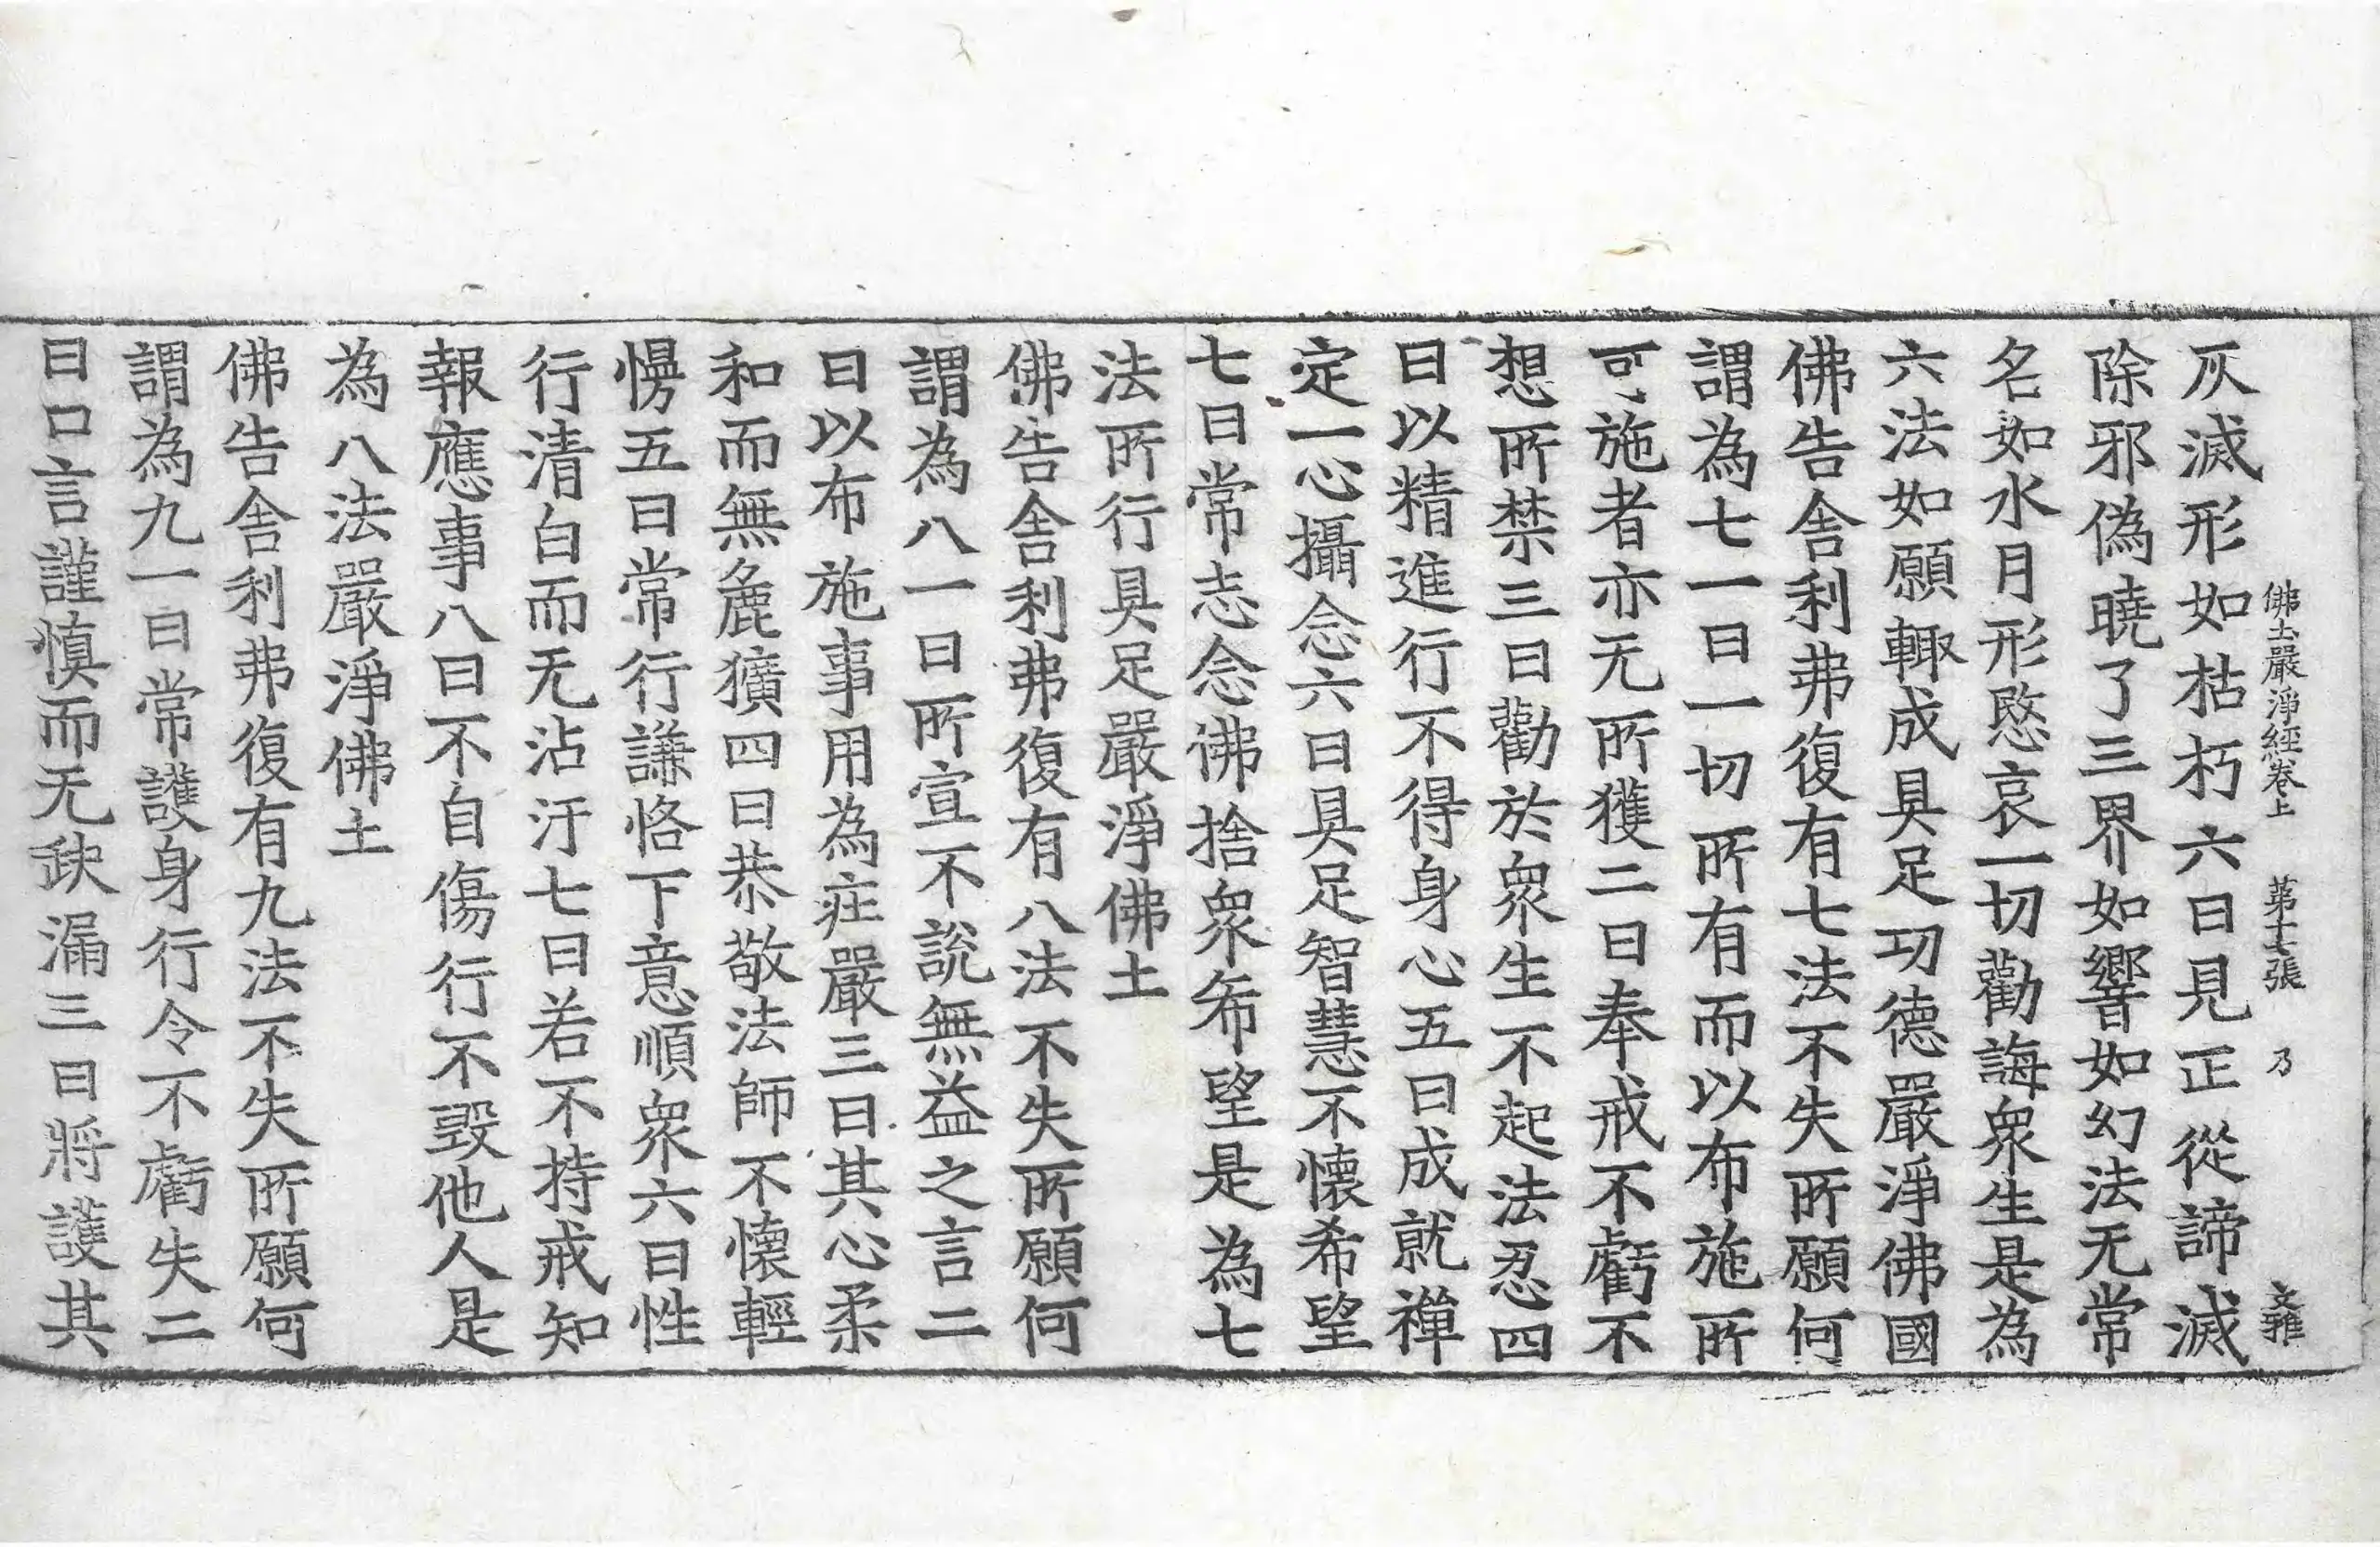 佛土嚴淨經卷上 第十七張 乃 文雅
灰滅形如枯朽六曰見正從諦滅
除邪偽曉了三界如響如幻法无常
名如水月形愍哀一切勸誨衆生是為
六法如願輙成具足功德嚴淨佛國
佛告舍利弗復有七法不失所願何
謂為七一曰一切所有而以布施所
可施者亦无所獲二曰奉戒不虧不
想所禁三曰勸於衆生不起法忍四
曰以精進行不得身心五曰成就禪
定一心攝念六曰具足智慧不懷希望
七曰常志念佛捨衆希望是為七
法所行具足嚴淨佛土
佛告舍利弗復有八法不失所願何
謂為八一曰所宣不說無益之言二
曰以布施事用為莊嚴三曰其心柔
和而無麁獷四曰恭敬法師不懷輕
慢五曰常行謙恪下意順衆六曰性
行清白而无沾汙七曰若不持戒知
報應事八曰不自傷行不毀他人是
為八法嚴淨佛土
佛告舍利弗復有九法不失所願何
謂為九一曰常護身行令不虧失二
曰口言謹慎而无缺漏三曰將護其